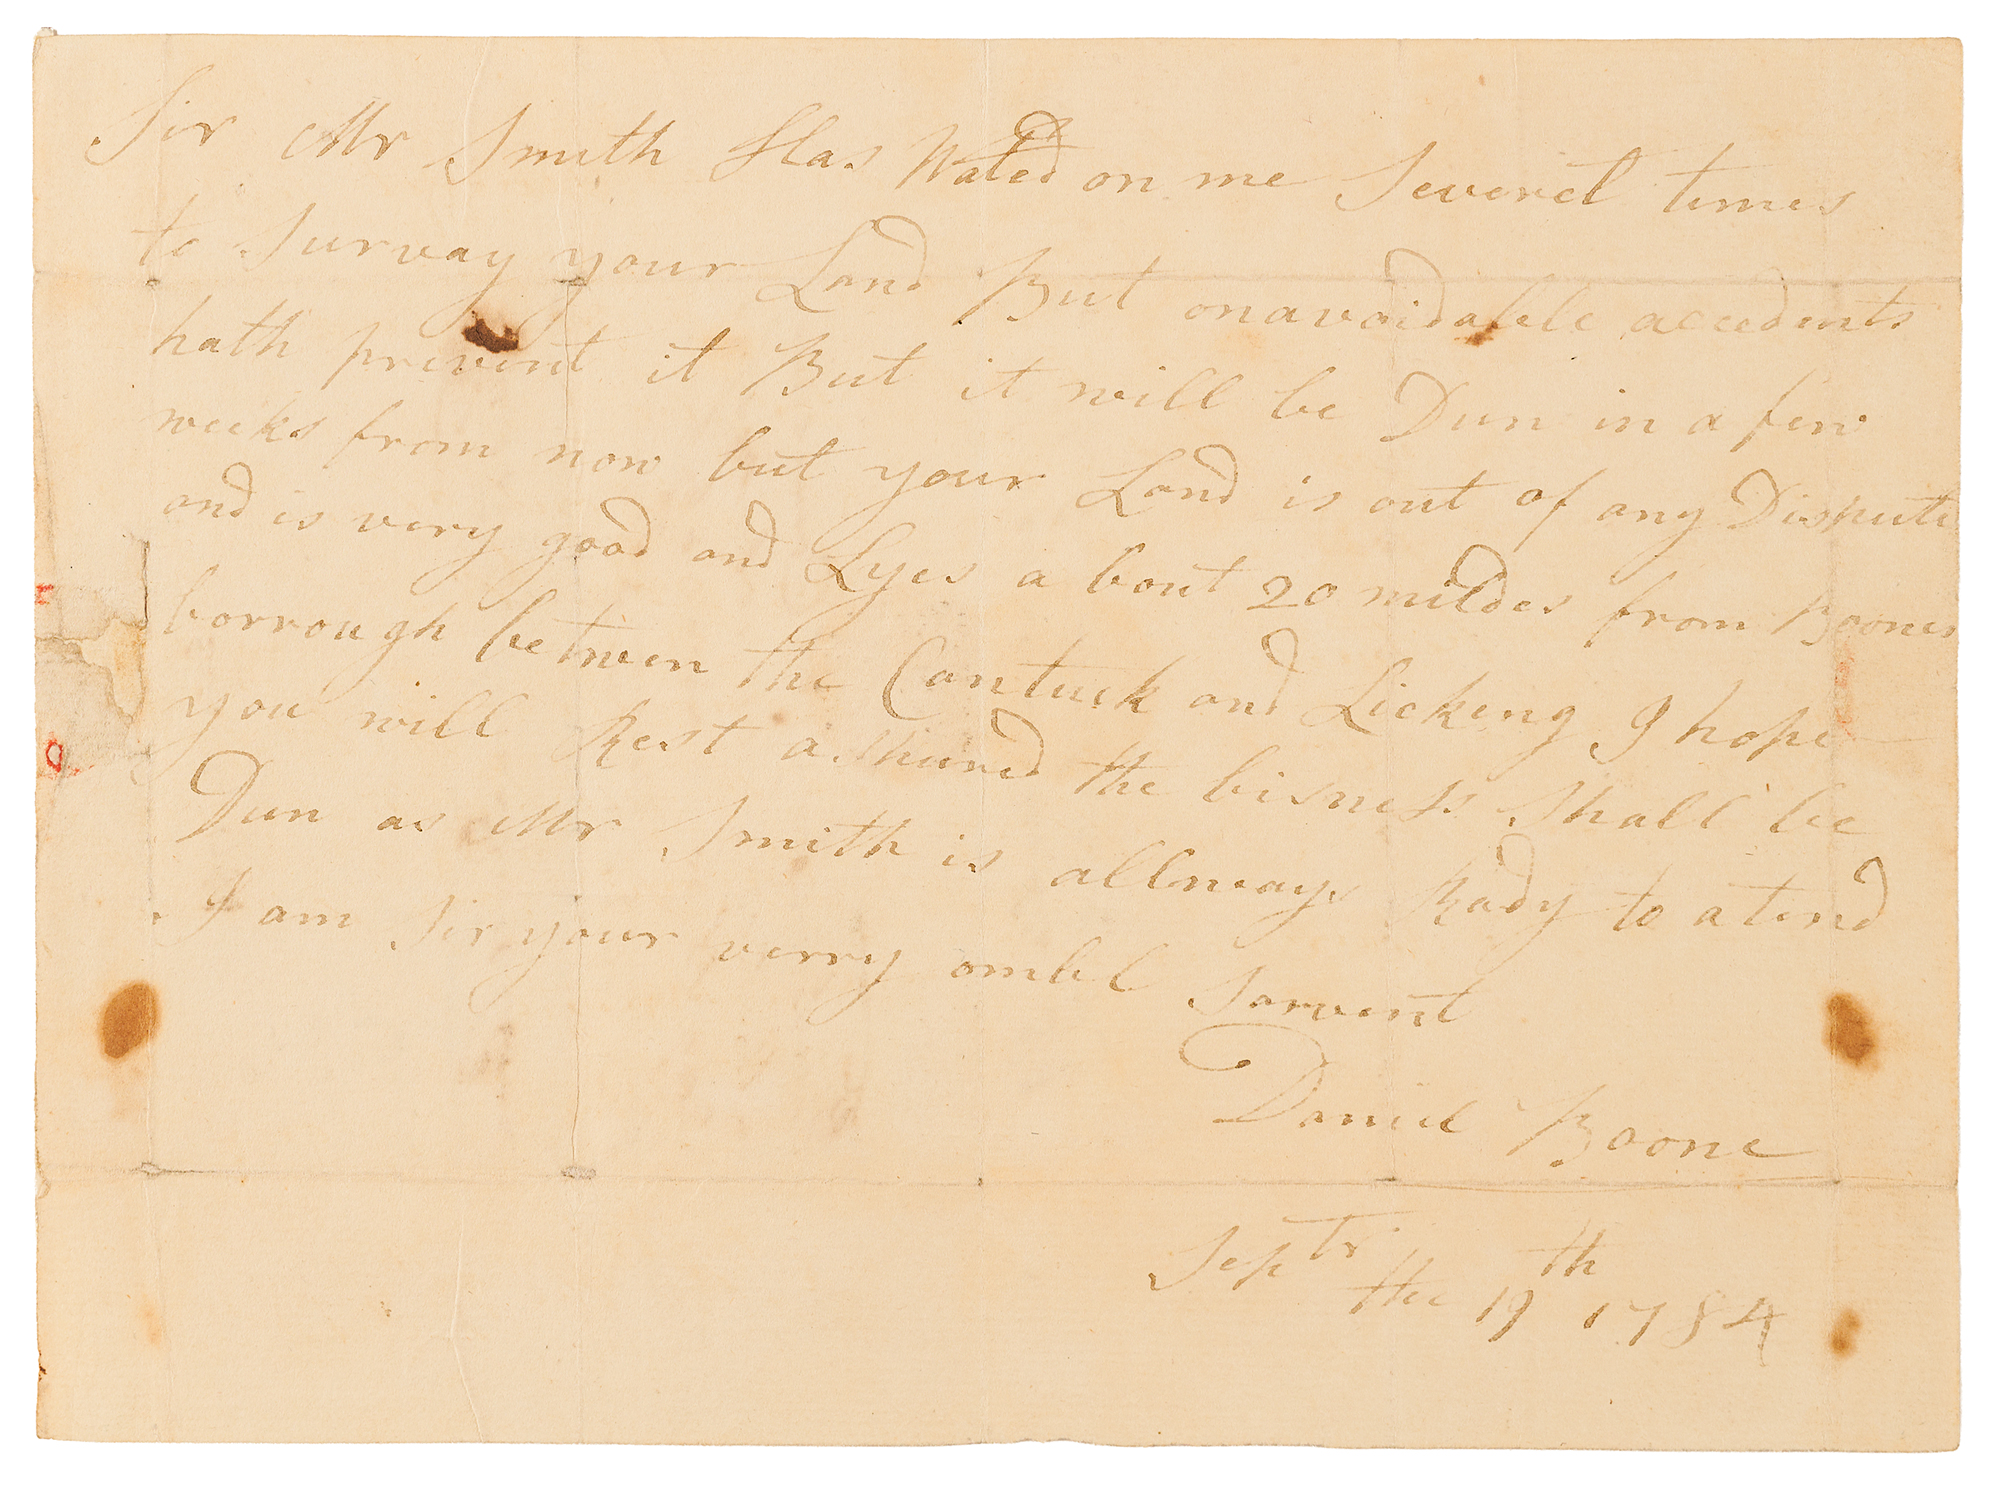 Sir Mr Smith Has Wated on me Severel times
to Survay your Land But onavoidable accedents
hath prevent it But it will be Dun in a few
weeks from now but your Land is out of any Dispute
and is very good and Lyes a bout 20 mildes from Boones
borrough between the Cantuck and Licking I hope
you will Rest asshured the bisness Shall be
Dun as Mr Smith is allways Rady to atend
I am Sir your verry ombel Sarvent
Daniel Boone
Septr the 19th 1784